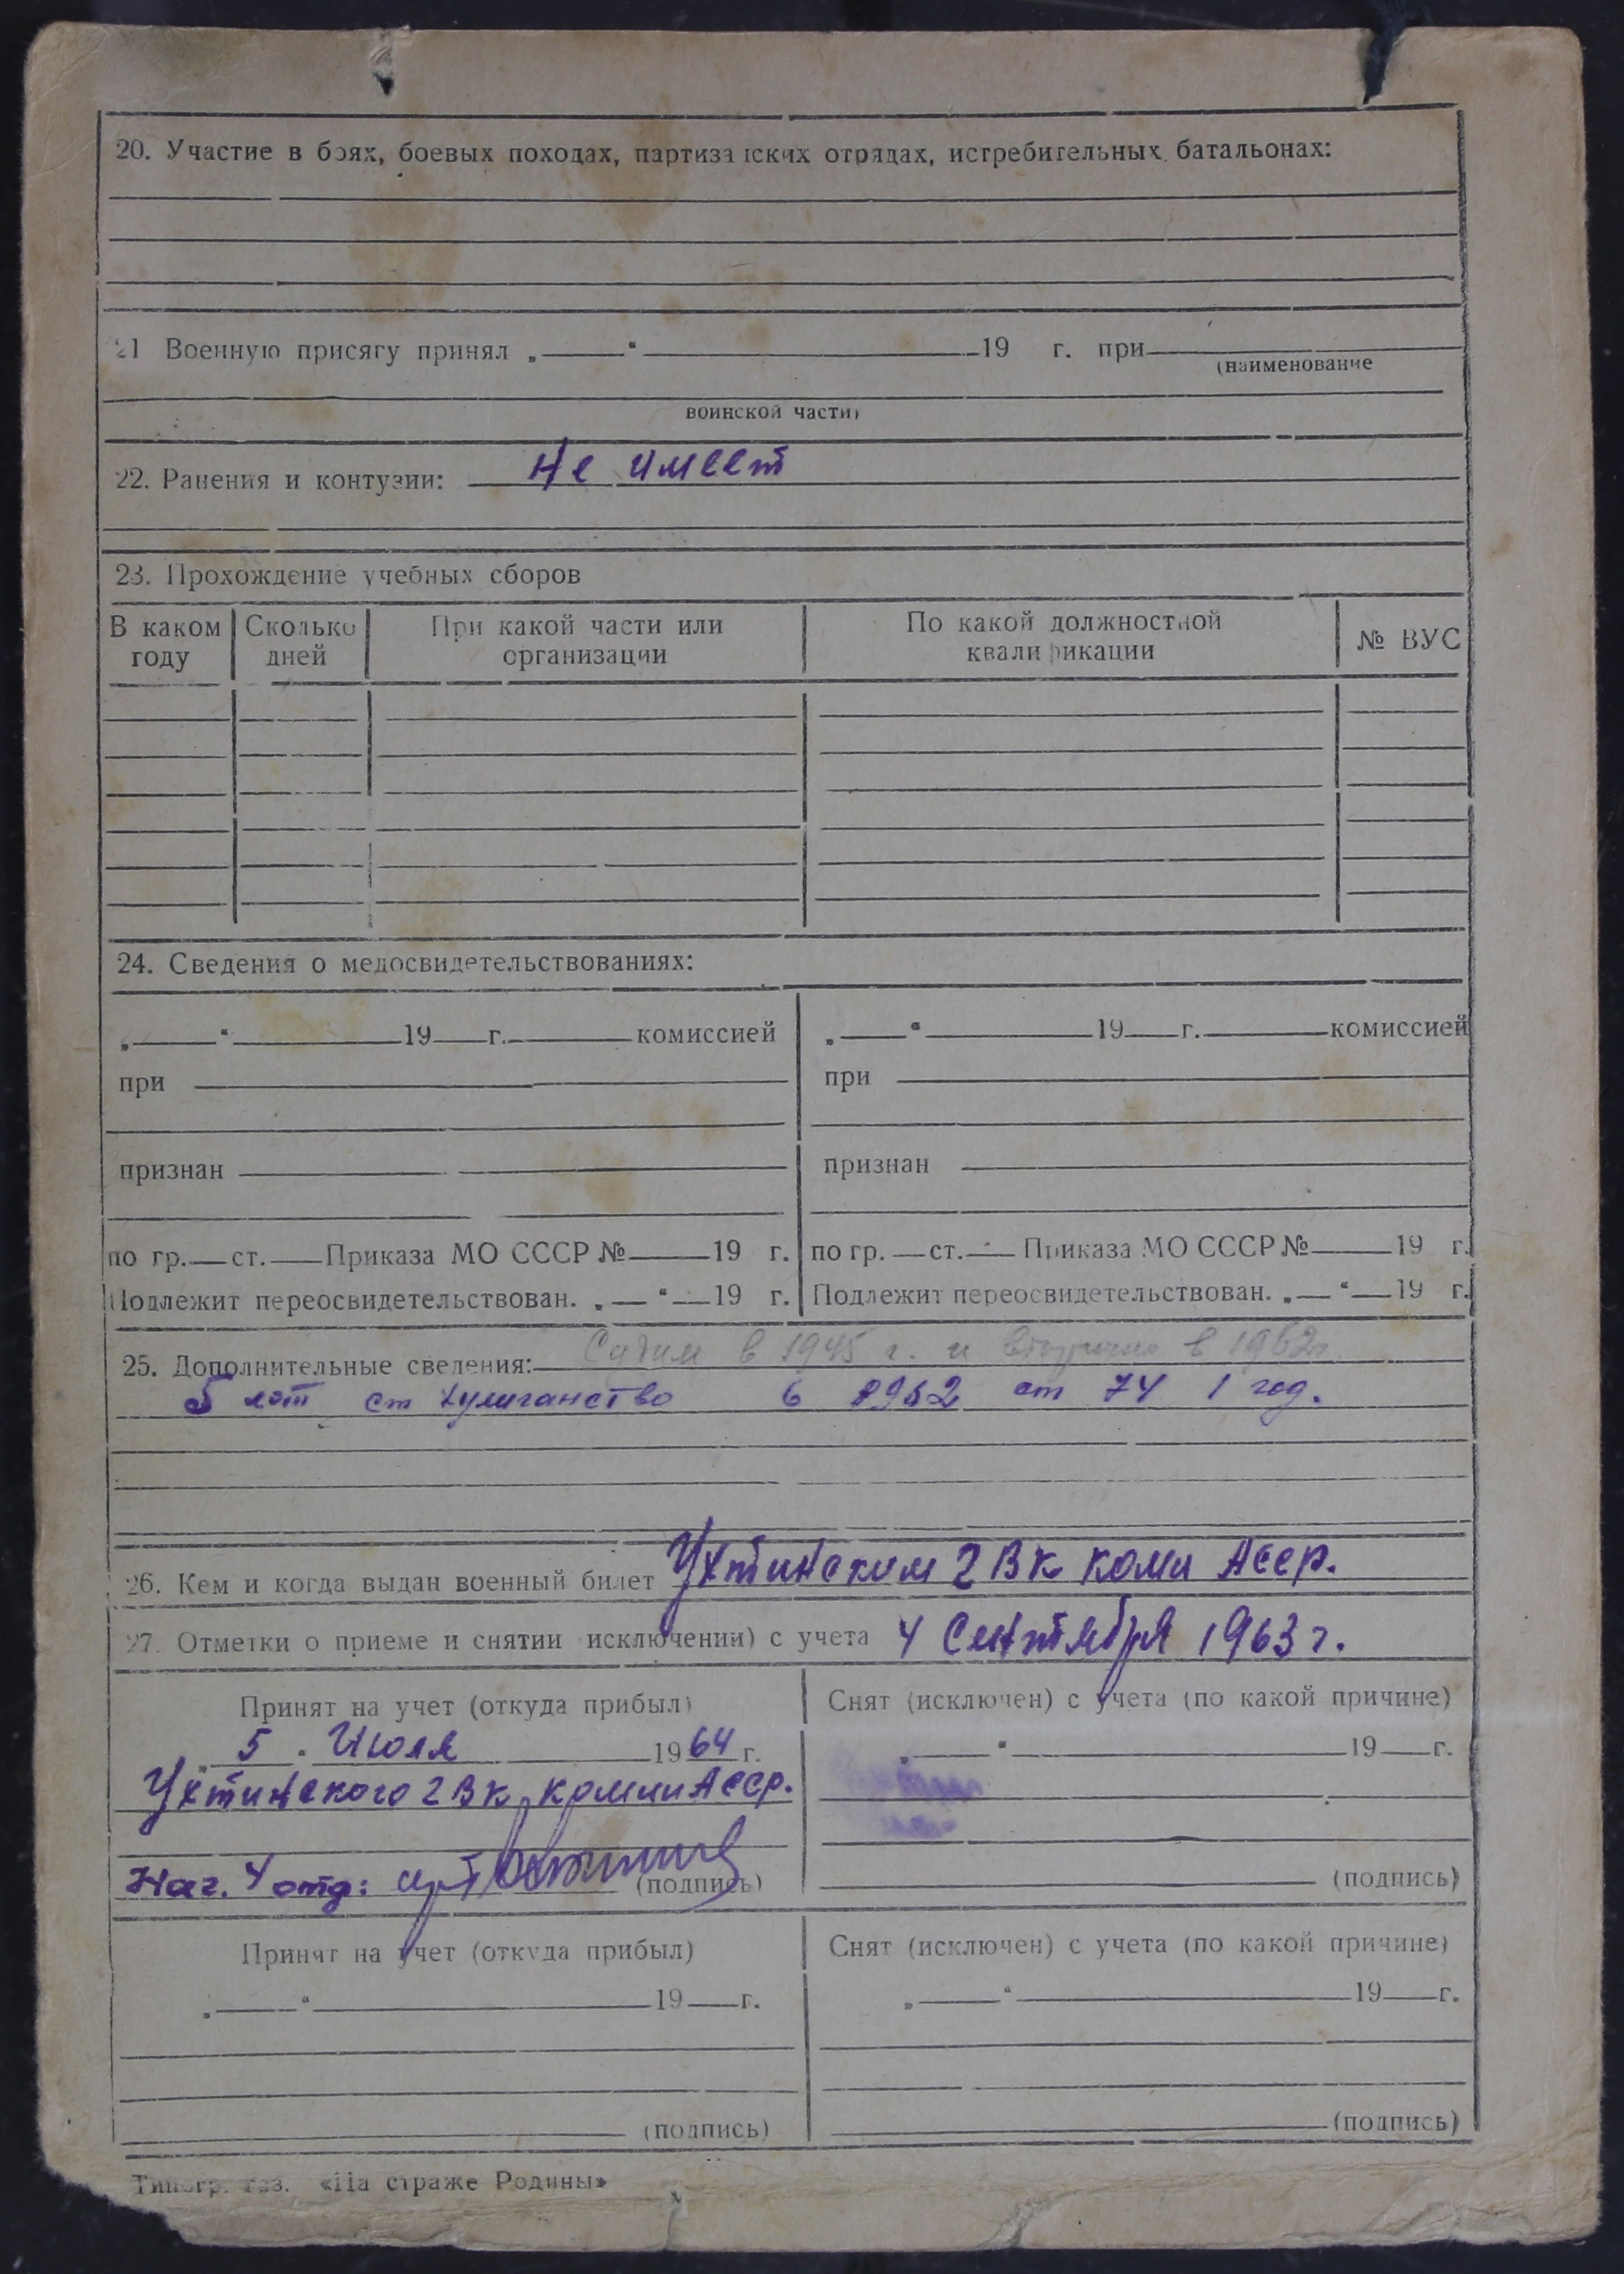 20. Участие в боях, боевых походах, партизанских отрядах, истребительных батальонах:
21 Военную присягу принял „ “ 19 г. при
(наименование
воинской части)
22. Ранения и контузии: не имеет
23. Прохождение учебных сборов
В каком году Сколько дней При какой части или организации По какой должностной квалификации № ВУС
24. Сведения о медосвидетельствованиях:
„ “ 19 г. комиссией „ “ 19 г. комиссией
при при
признан признан
по гр. ст. Приказа МО СССР № 19 г. по гр. ст. Приказа МО СССР № 19 г.
Подлежит переосвидетельствован. „ “ 19 г. Подлежит переосвидетельствован. „ “ 19 г.
25. Дополнительные сведения: Судим в 1945 г. и вторично в 1962г
5 лет ст хулиганство в 1962 ст 74 1 год.
26. Кем и когда выдан военный билет Ухтинским ГВК коми Асср.
27. Отметки о приеме и снятии исключении) с учета 4 Сентября 1963 г.
Принят на учет (откуда прибыл) Снят (исключен) с учета (по какой причине)
„ 5 “ Июля 1964 г. „ “ 19 г.
Ухтинского ГВК коми Асср.
Нач. 4 отд: (подпись) (подпись)
Принят на учет (откуда прибыл) Снят (исключен) с учета (по какой причине)
„ “ 19 г. „ “ 19 г.
(подпись) (подпись)
Типогр. газ. «На страже Родины»